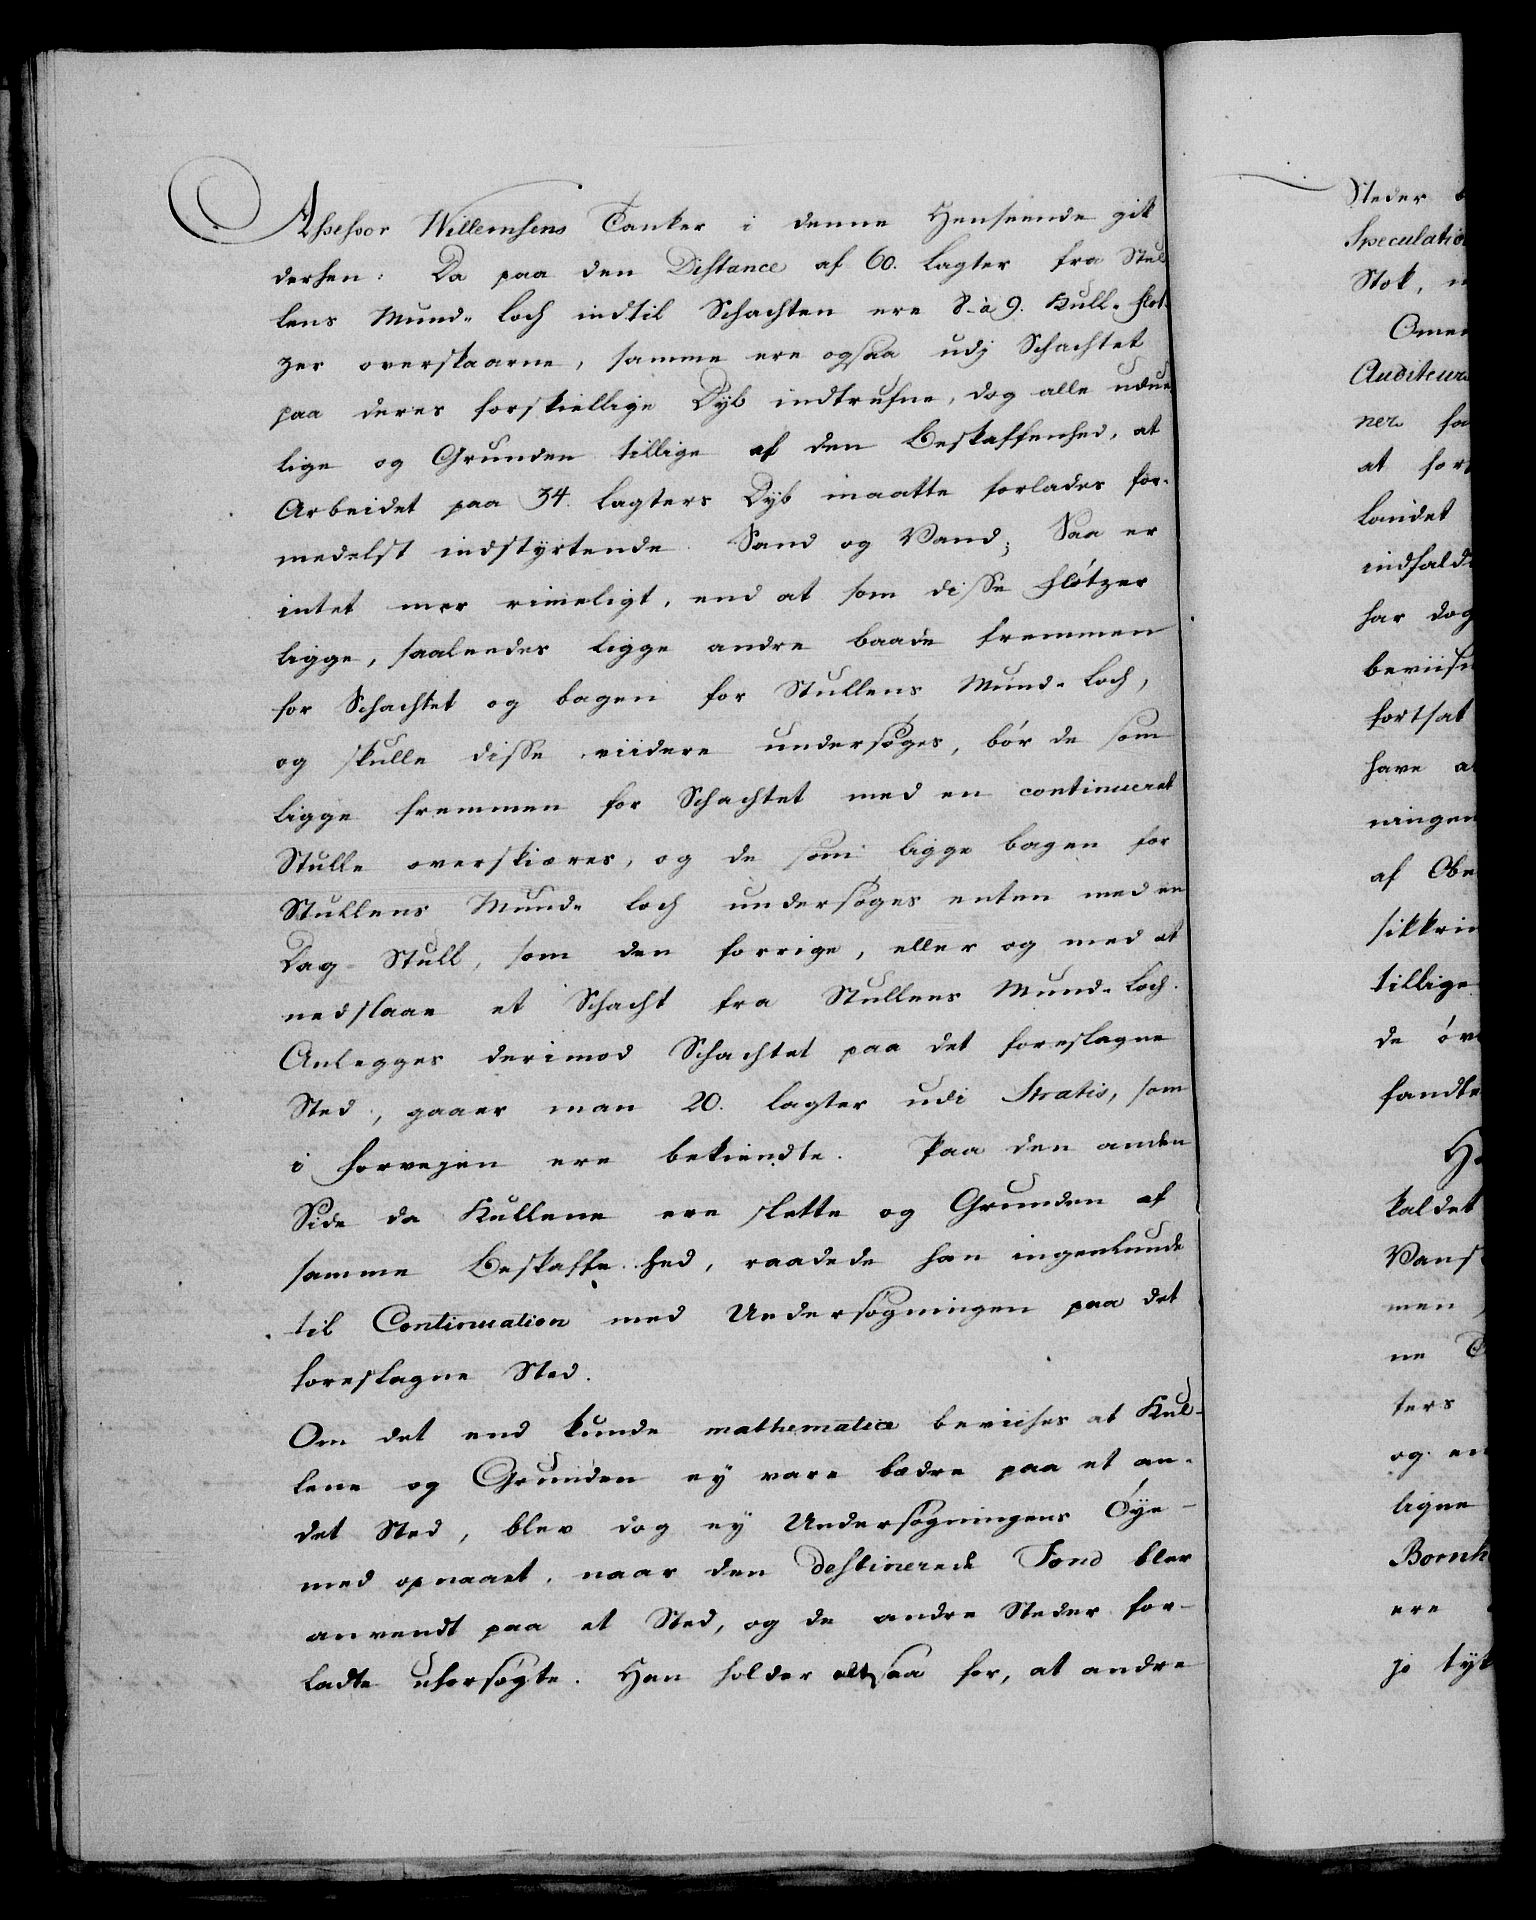 Assessor Willemsens Tanker i denne Henseende gik
derhen: Da paa den Distance af 60. Lagter fra Stul
lens Mund-Loch indtil Schachten ere 8. à 9. Kull-Flöt-
zer overskaarne, samme ere ogsaa udj Schachtet
paa deres forskiellige Dyb indtrufne, dog alle udue
lige og Grunden tillige af den Beskaffenhed, at
Arbeidet paa 34. Lagters Dyb maatte forlades for-
medelst indstyrtende Sand og Vand; Saa er
intet mer rimeligt, end at som disse Flötzer
ligge, saaleedes ligge andre baade fremmen
for Schachtet og bagen for Stullens Mund-Loch,
og skulle disse viidere undersøges, bör de som
ligge fremmen for Schachtet med en continueret
Stulle overskiæres, og de som ligge bagen for
Stullens Mund-Loch undersøges enten med en
Dag-Stull, som den forrige, eller og med at
nedslaae et Schacht fra Stullens Mund-Loch.
Anlegges derimod Schachtet paa det foreslagne
Sted, gaaer man 20. Lagter udi Stratis, som
i Forvejen ere bekiendte. Paa den anden
Side da Kullene ere slette og Grunden af
samme Beskaffenhed, raadede han ingenlunde
til Continuation med Undersøgningen paa det
foreslagne Sted.
Om det end kunde mathematice beviises at Kul-
lene og Grunden ey vare bedre paa et an-
det Sted, blev dog ey Undersøgningens Öye-
med opnaaet, naar den destinerede Fond blev
anvendt paa et Sted, og de andre Steder for-
ladte uforsøgte. Han holder altsaa for, at andre
Steder
Speculatio
Stok,
Omen
Auditeur
ner fo
at for
Landet
indfald
har dog
beviise
fortsat
have a
ningen
af Obe
sikkrin
tillige
de öv
fandte
H
kaldet
Vans
men
ne
ters
og en
ligne
Bornh
ere
jo tyk